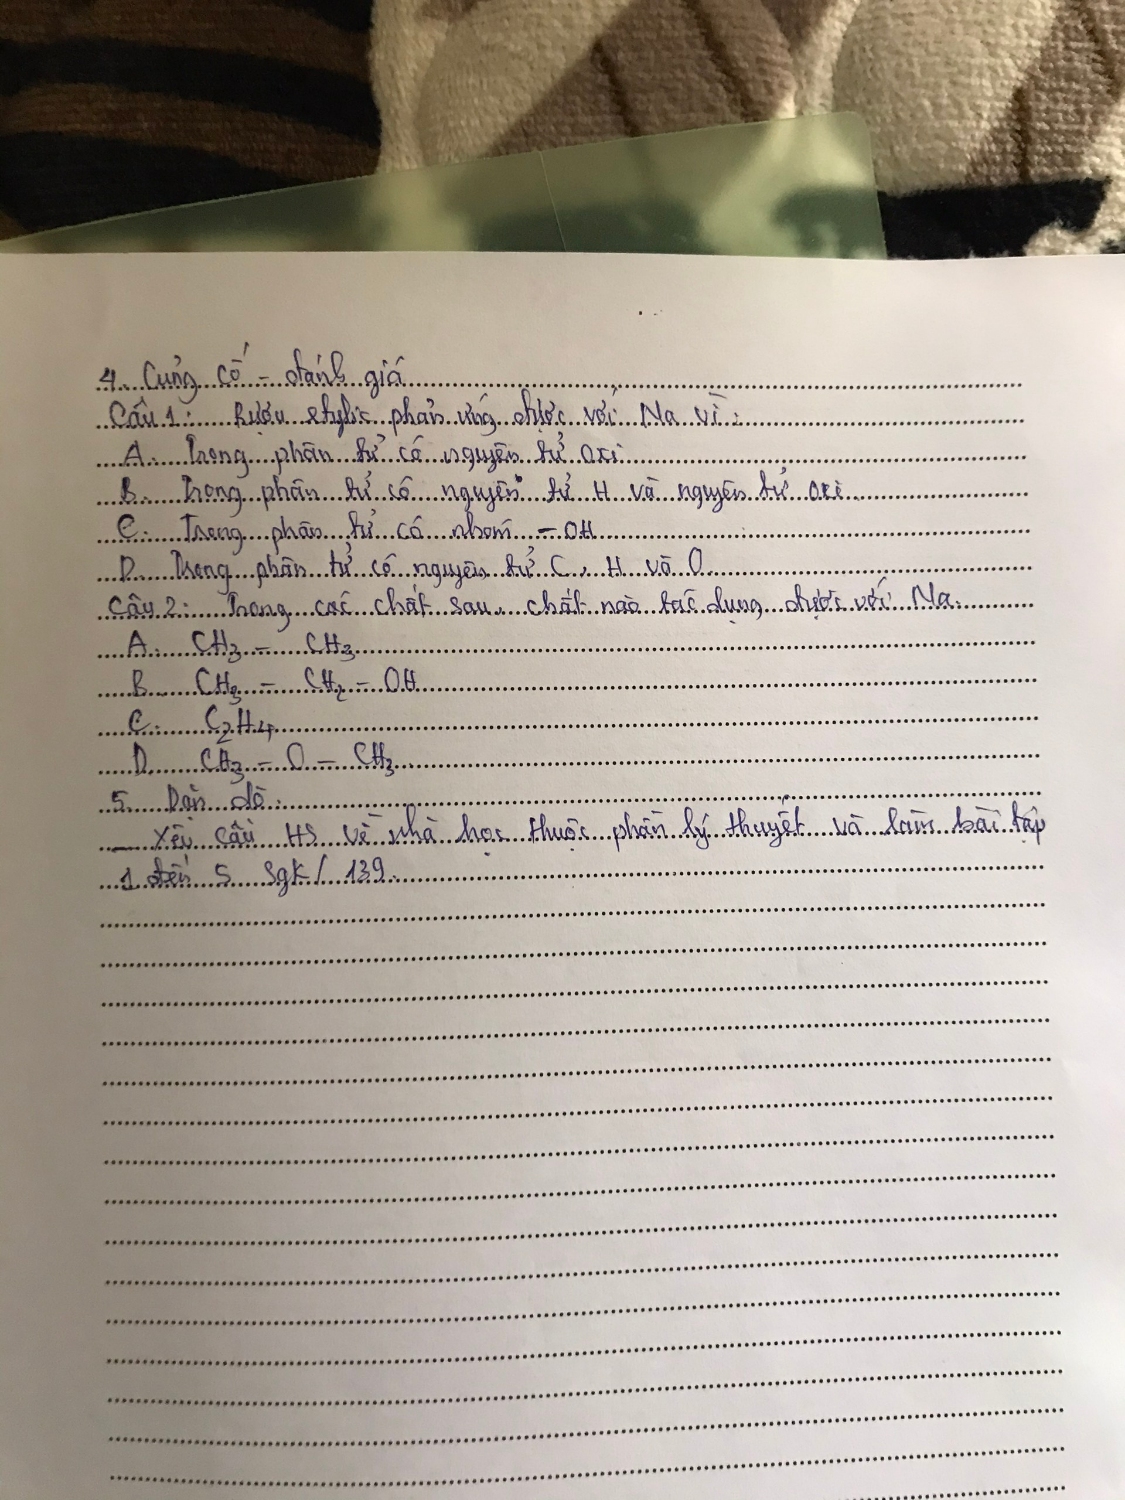 4. Củng cố - đánh giá
Câu 1: Rượu etylic phản ứng được với Na vì:
A. Trong phân tử có nguyên tử oxi
B. Trong phân tử có nguyên tử H và nguyên tử oxi.
C. Trong phân tử có nhóm - OH
D. Trong phân tử có nguyên tử C, H và O.
Câu 2: Trong các chất sau, chất nào tác dụng được với Na.
A. CH₃ - CH₃
B. CH₃ - CH₂ - OH
C. C₂H₄
D. CH₃ - O - CH₃
5. Dặn dò:
- Yêu cầu HS về nhà học thuộc phần lý thuyết và làm bài tập
1 đến 5 Sgk/ 139.